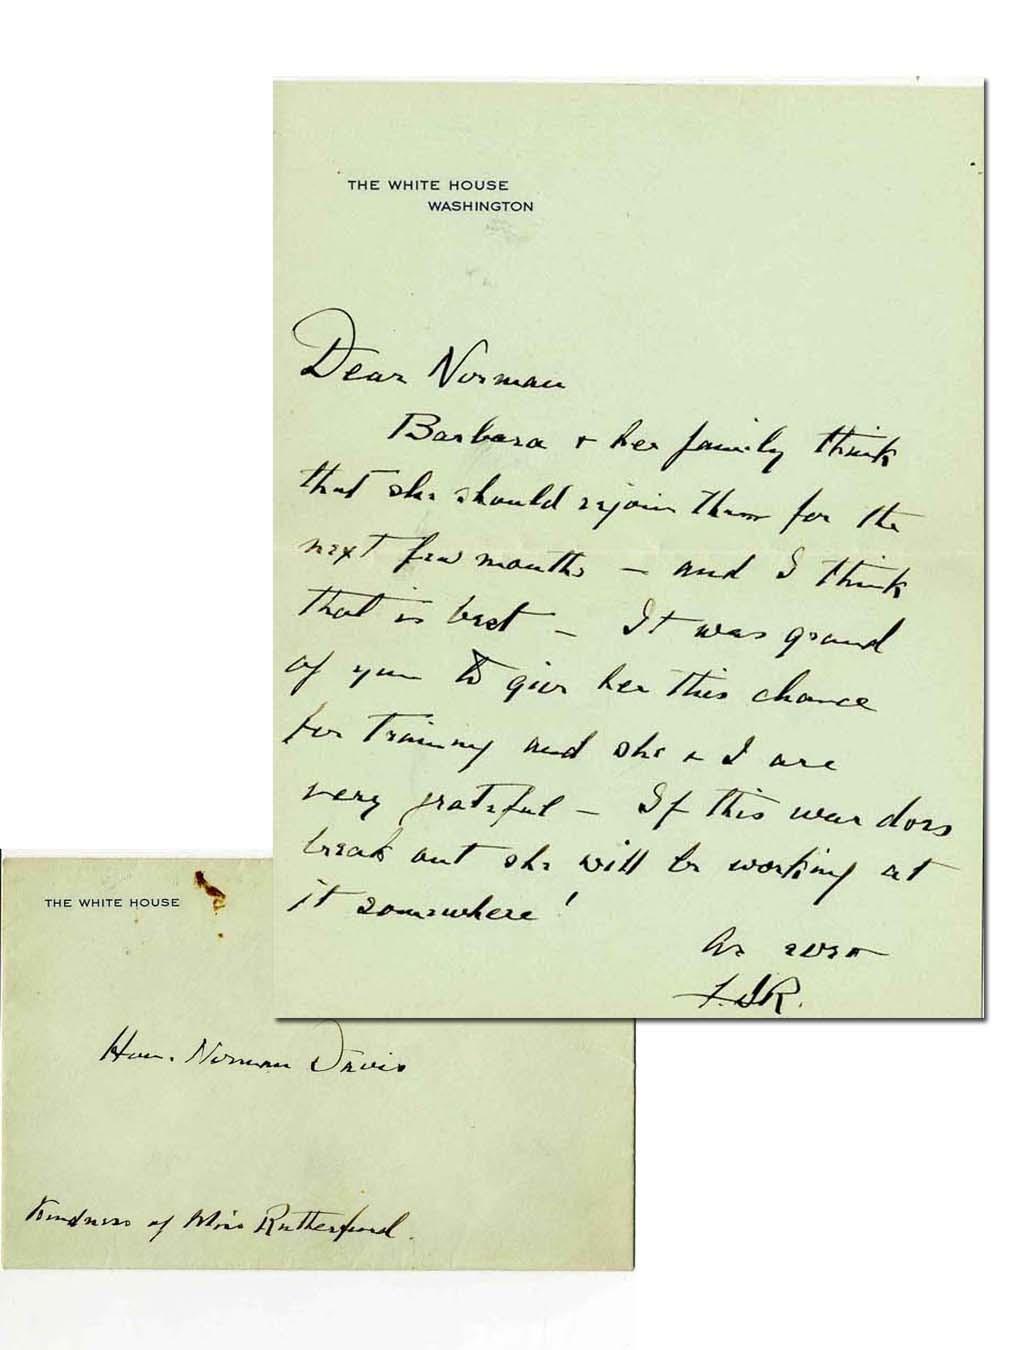 THE WHITE HOUSE
WASHINGTON
Dear Norman
Barbara + her family think
that she should rejoin them for the
next few months – and I think
that is best – It was grand
of you to give her this chance
for training and she + I are
very grateful – If this war does
break out she will be working at
it somewhere!
As ever
F.D.R.
THE WHITE HOUSE
Hon. Norman Davis
Kindness of Miss Rutherfurd.